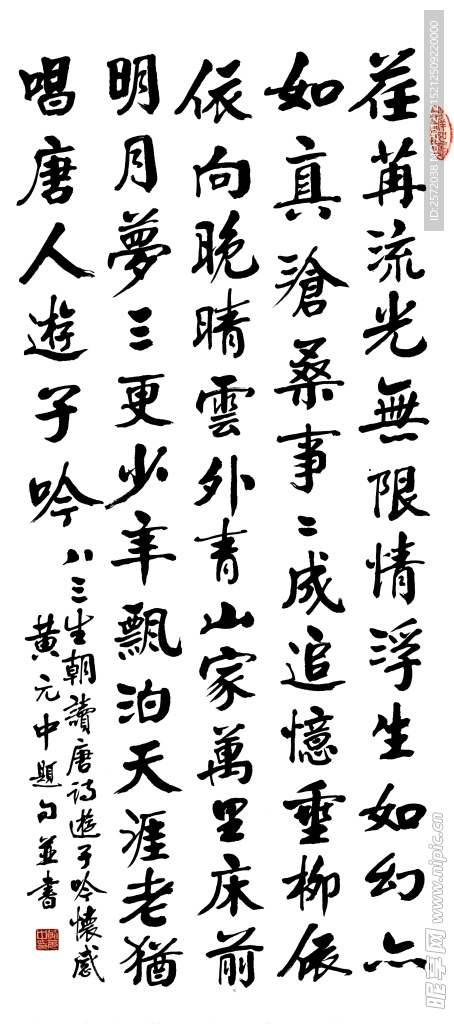 荏苒流光無限情浮生如幻亦
如真滄桑事〻成追憶垂柳依
依向晚晴雲外青山家萬里床前
明月夢三更少年飄泊天涯老猶
唱唐人遊子吟
八三生朝讀唐詩遊子吟懷感
黄元中題句並書
ID:2572038
昵享网 www.nipic.cn